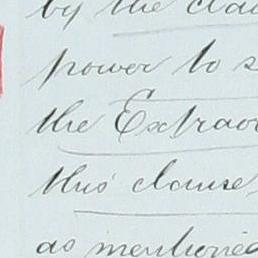 by the clau
power to s
the Extraor
this clause
as mentioned